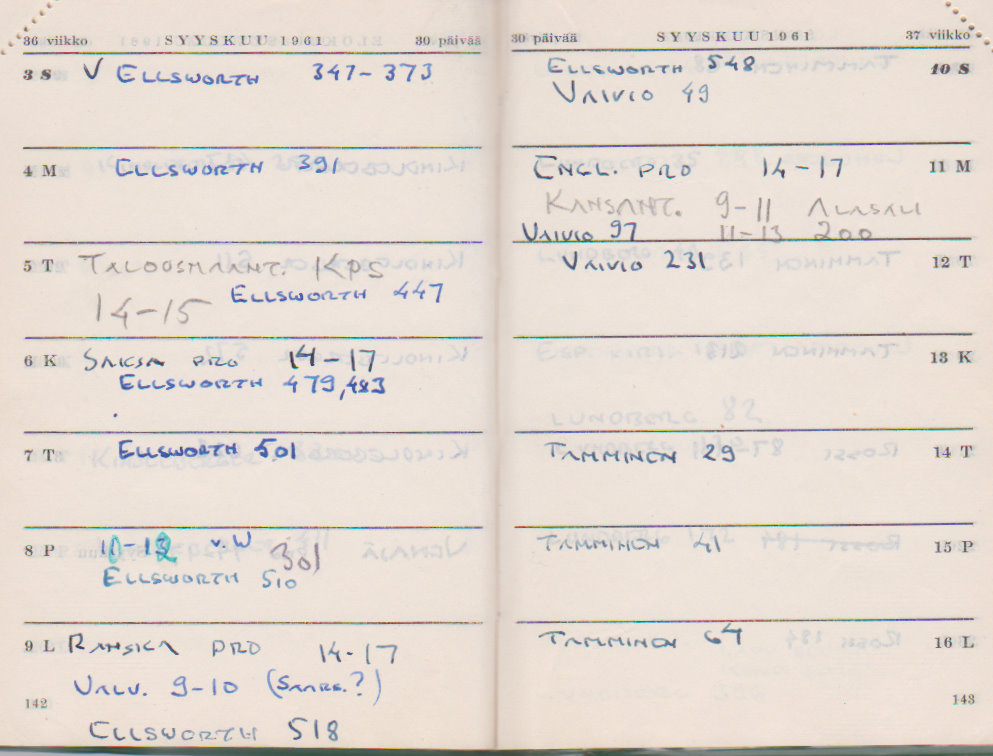 36 viikko SYYSKUU 1961 30 päivää
3 S V ELLSWORTH 347-373
4 M ELLSWORTH 391
5 T TALOUSMAANT. KPS
ELLSWORTH 447
14-15
6 K SAKSA PRO 14-17
ELLSWORTH 479,483
7 T ELLSWORTH 501
8 P 10-12 v.W 301
ELLSWORTH 510
9 L RANSKA PRO 14-17
VALV. 9-10 (SAARS.?)
142
ELLSWORTH 518
30 päivää SYYSKUU 1961 37 viikko
ELLSWORTH 548 10 S
VAIVIO 49
ENGL. PRO 14-17 11 M
KANSANT. 9-11 ALASALI
VAIVIO 97 11-13 200
VAIVIO 231 12 T
13 K
LUNDBERG 82
TAMMINEN 29 14 T
TAMMINEN 41 15 P
TAMMINEN 64 16 L
143